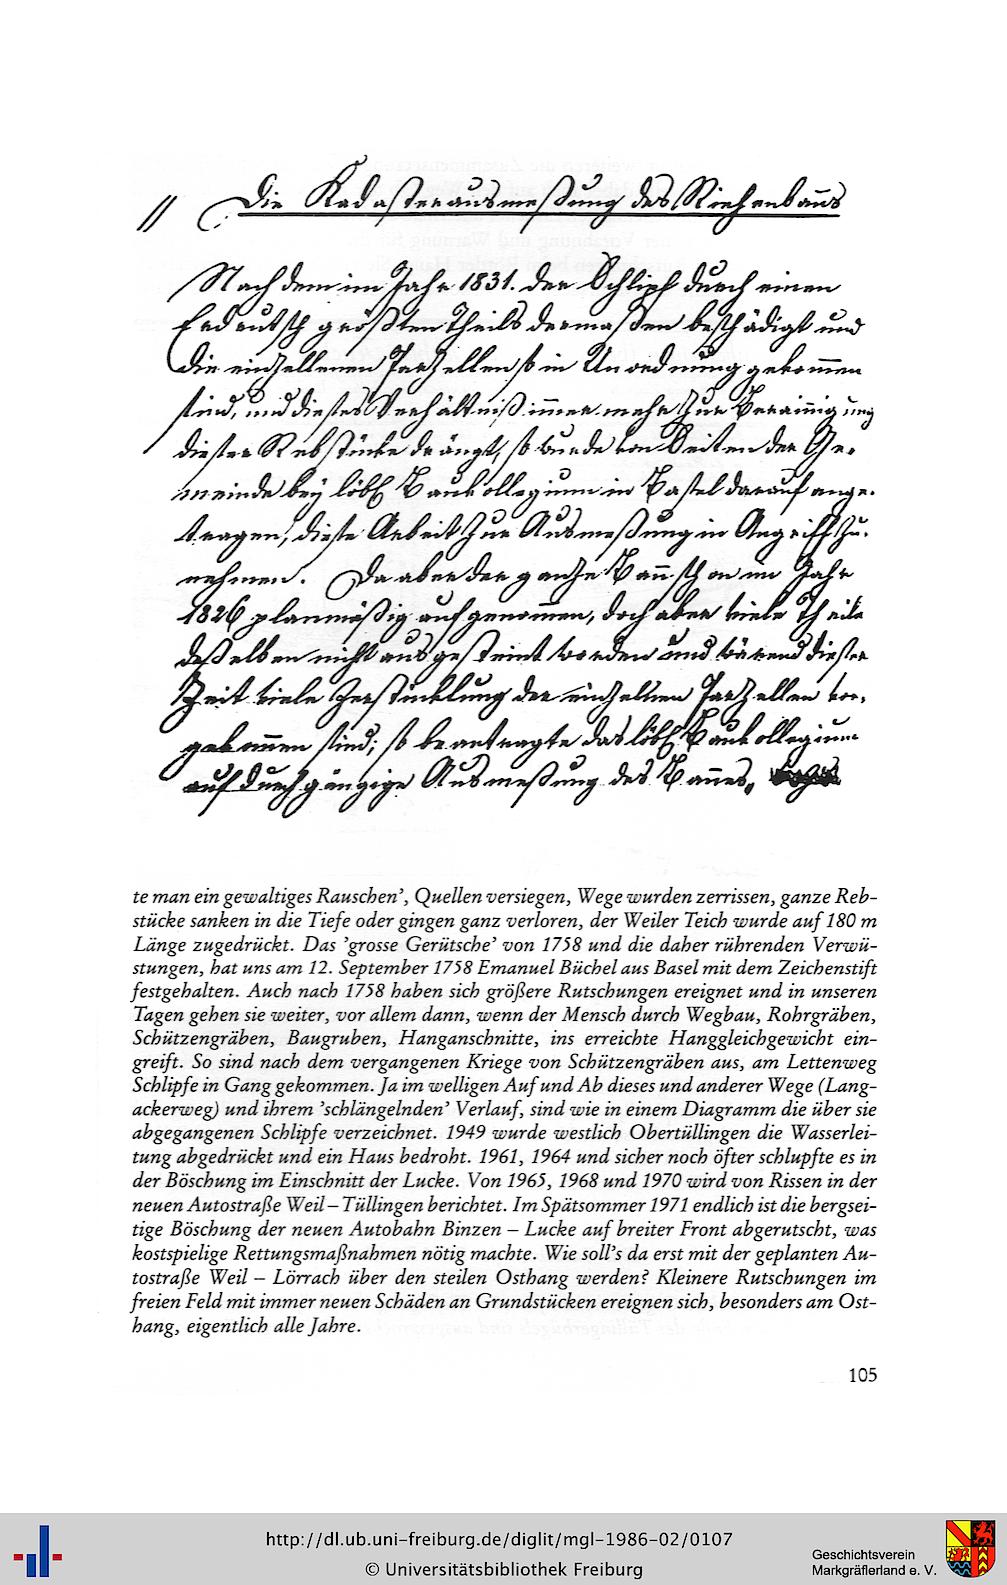 // Die Kadasterausmeßung des Riehenbañs
Nachdem im Jahr 1831. der Schlipf durch einen
Erdrutsch größtentheils dermaßen beschädigt und
die einzellenen Parzellen so in Unordnung gekom̃en
sind, und dieses Verhältniß im̃er mehr zur Berainigung
dieser Rebstücke drängt, so wurde von Seiten der Ge-
meinde bey löbl Baukollegium in Basel darauf ange-
tragen, diese Arbeit zur Ausmeßung in Angriff zu-
nehmen. Da aber der ganze Bañ schon im Jahr
1826 planmäßig aufgenom̃en, doch aber viele Theile
deßelben nicht ausgesteint worden und wärend dieser
Zeit viele Zerstücklung der einzelnen Parzellen vor-
gekom̃en sind; so beantragte das löbl Baukollegium
auf durchgängige Ausmeßung des Bañes,
te man ein gewaltiges Rauschen’, Quellen versiegen, Wege wurden zerrissen, ganze Reb-
stücke sanken in die Tiefe oder gingen ganz verloren, der Weiler Teich wurde auf 180 m
Länge zugedrückt. Das ’grosse Gerütsche’ von 1758 und die daher rührenden Verwü-
stungen, hat uns am 12. September 1758 Emanuel Büchel aus Basel mit dem Zeichenstift
festgehalten. Auch nach 1758 haben sich größere Rutschungen ereignet und in unseren
Tagen gehen sie weiter, vor allem dann, wenn der Mensch durch Wegbau, Rohrgräben,
Schützengräben, Baugruben, Hanganschnitte, ins erreichte Hanggleichgewicht ein-
greift. So sind nach dem vergangenen Kriege von Schützengräben aus, am Lettenweg
Schlipfe in Gang gekommen. Ja im welligen Auf und Ab dieses und anderer Wege (Lang-
ackerweg) und ihrem ’schlängelnden’ Verlauf, sind wie in einem Diagramm die über sie
abgegangenen Schlipfe verzeichnet. 1949 wurde westlich Obertüllingen die Wasserlei-
tung abgedrückt und ein Haus bedroht. 1961, 1964 und sicher noch öfter schlupfte es in
der Böschung im Einschnitt der Lucke. Von 1965, 1968 und 1970 wird von Rissen in der
neuen Autostraße Weil – Tüllingen berichtet. Im Spätsommer 1971 endlich ist die bergsei-
tige Böschung der neuen Autobahn Binzen – Lucke auf breiter Front abgerutscht, was
kostspielige Rettungsmaßnahmen nötig machte. Wie soll’s da erst mit der geplanten Au-
tostraße Weil – Lörrach über den steilen Osthang werden? Kleinere Rutschungen im
freien Feld mit immer neuen Schäden an Grundstücken ereignen sich, besonders am Ost-
hang, eigentlich alle Jahre.
105
http://dl.ub.uni-freiburg.de/diglit/mgl-1986-02/0107
© Universitätsbibliothek Freiburg
Geschichtsverein
Markgräflerland e. V.